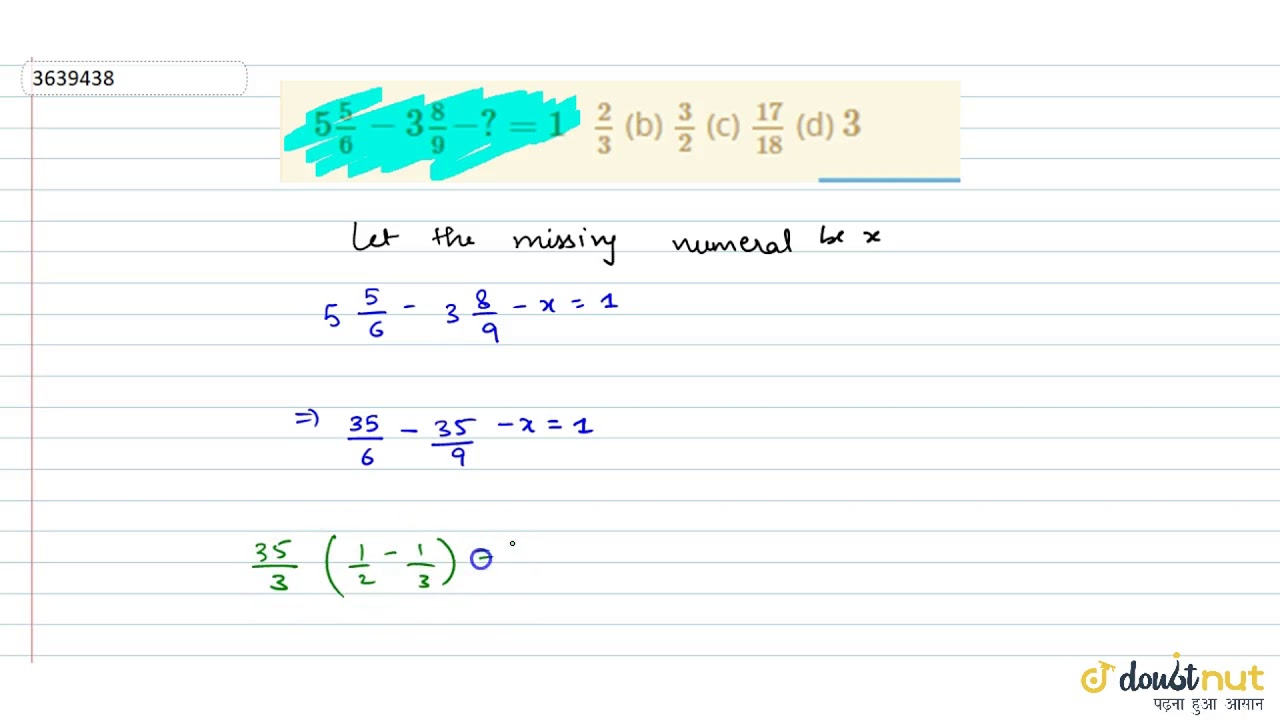 3639438
5 5/6 − 3 8/9 −? = 1 2/3 (b) 3/2 (c) 17/18 (d) 3
Let the missing numeral be x
5 5/6 - 3 8/9 - x = 1
=> 35/6 - 35/9 - x = 1
35/3 (1/2 - 1/3) -
doubtnut
पढ़ना हुआ आसान